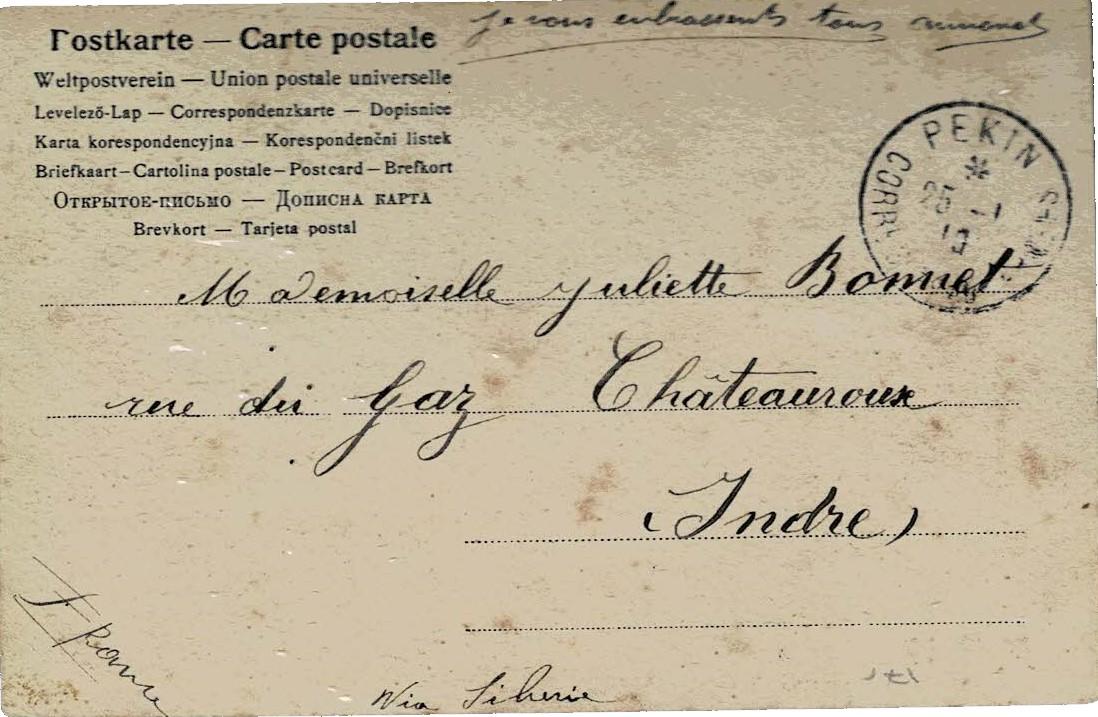 Je vous embrassents tous
Postkarte — Carte postale
Weltpostverein — Union postale universelle
Levelező-Lap — Correspondenzkarte — Dopisnice
Karta korespondencyjna — Korespondenční listek
Briefkaart – Cartolina postale – Postcard – Brefkort
Открытое-письмо — Дописна карта
Brevkort — Tarjeta postal
PEKIN
CORR
25 1
Mademoiselle Juliette Bonnet
rue du Gaz Châteauroux
(Indre)
France
Via Siberie